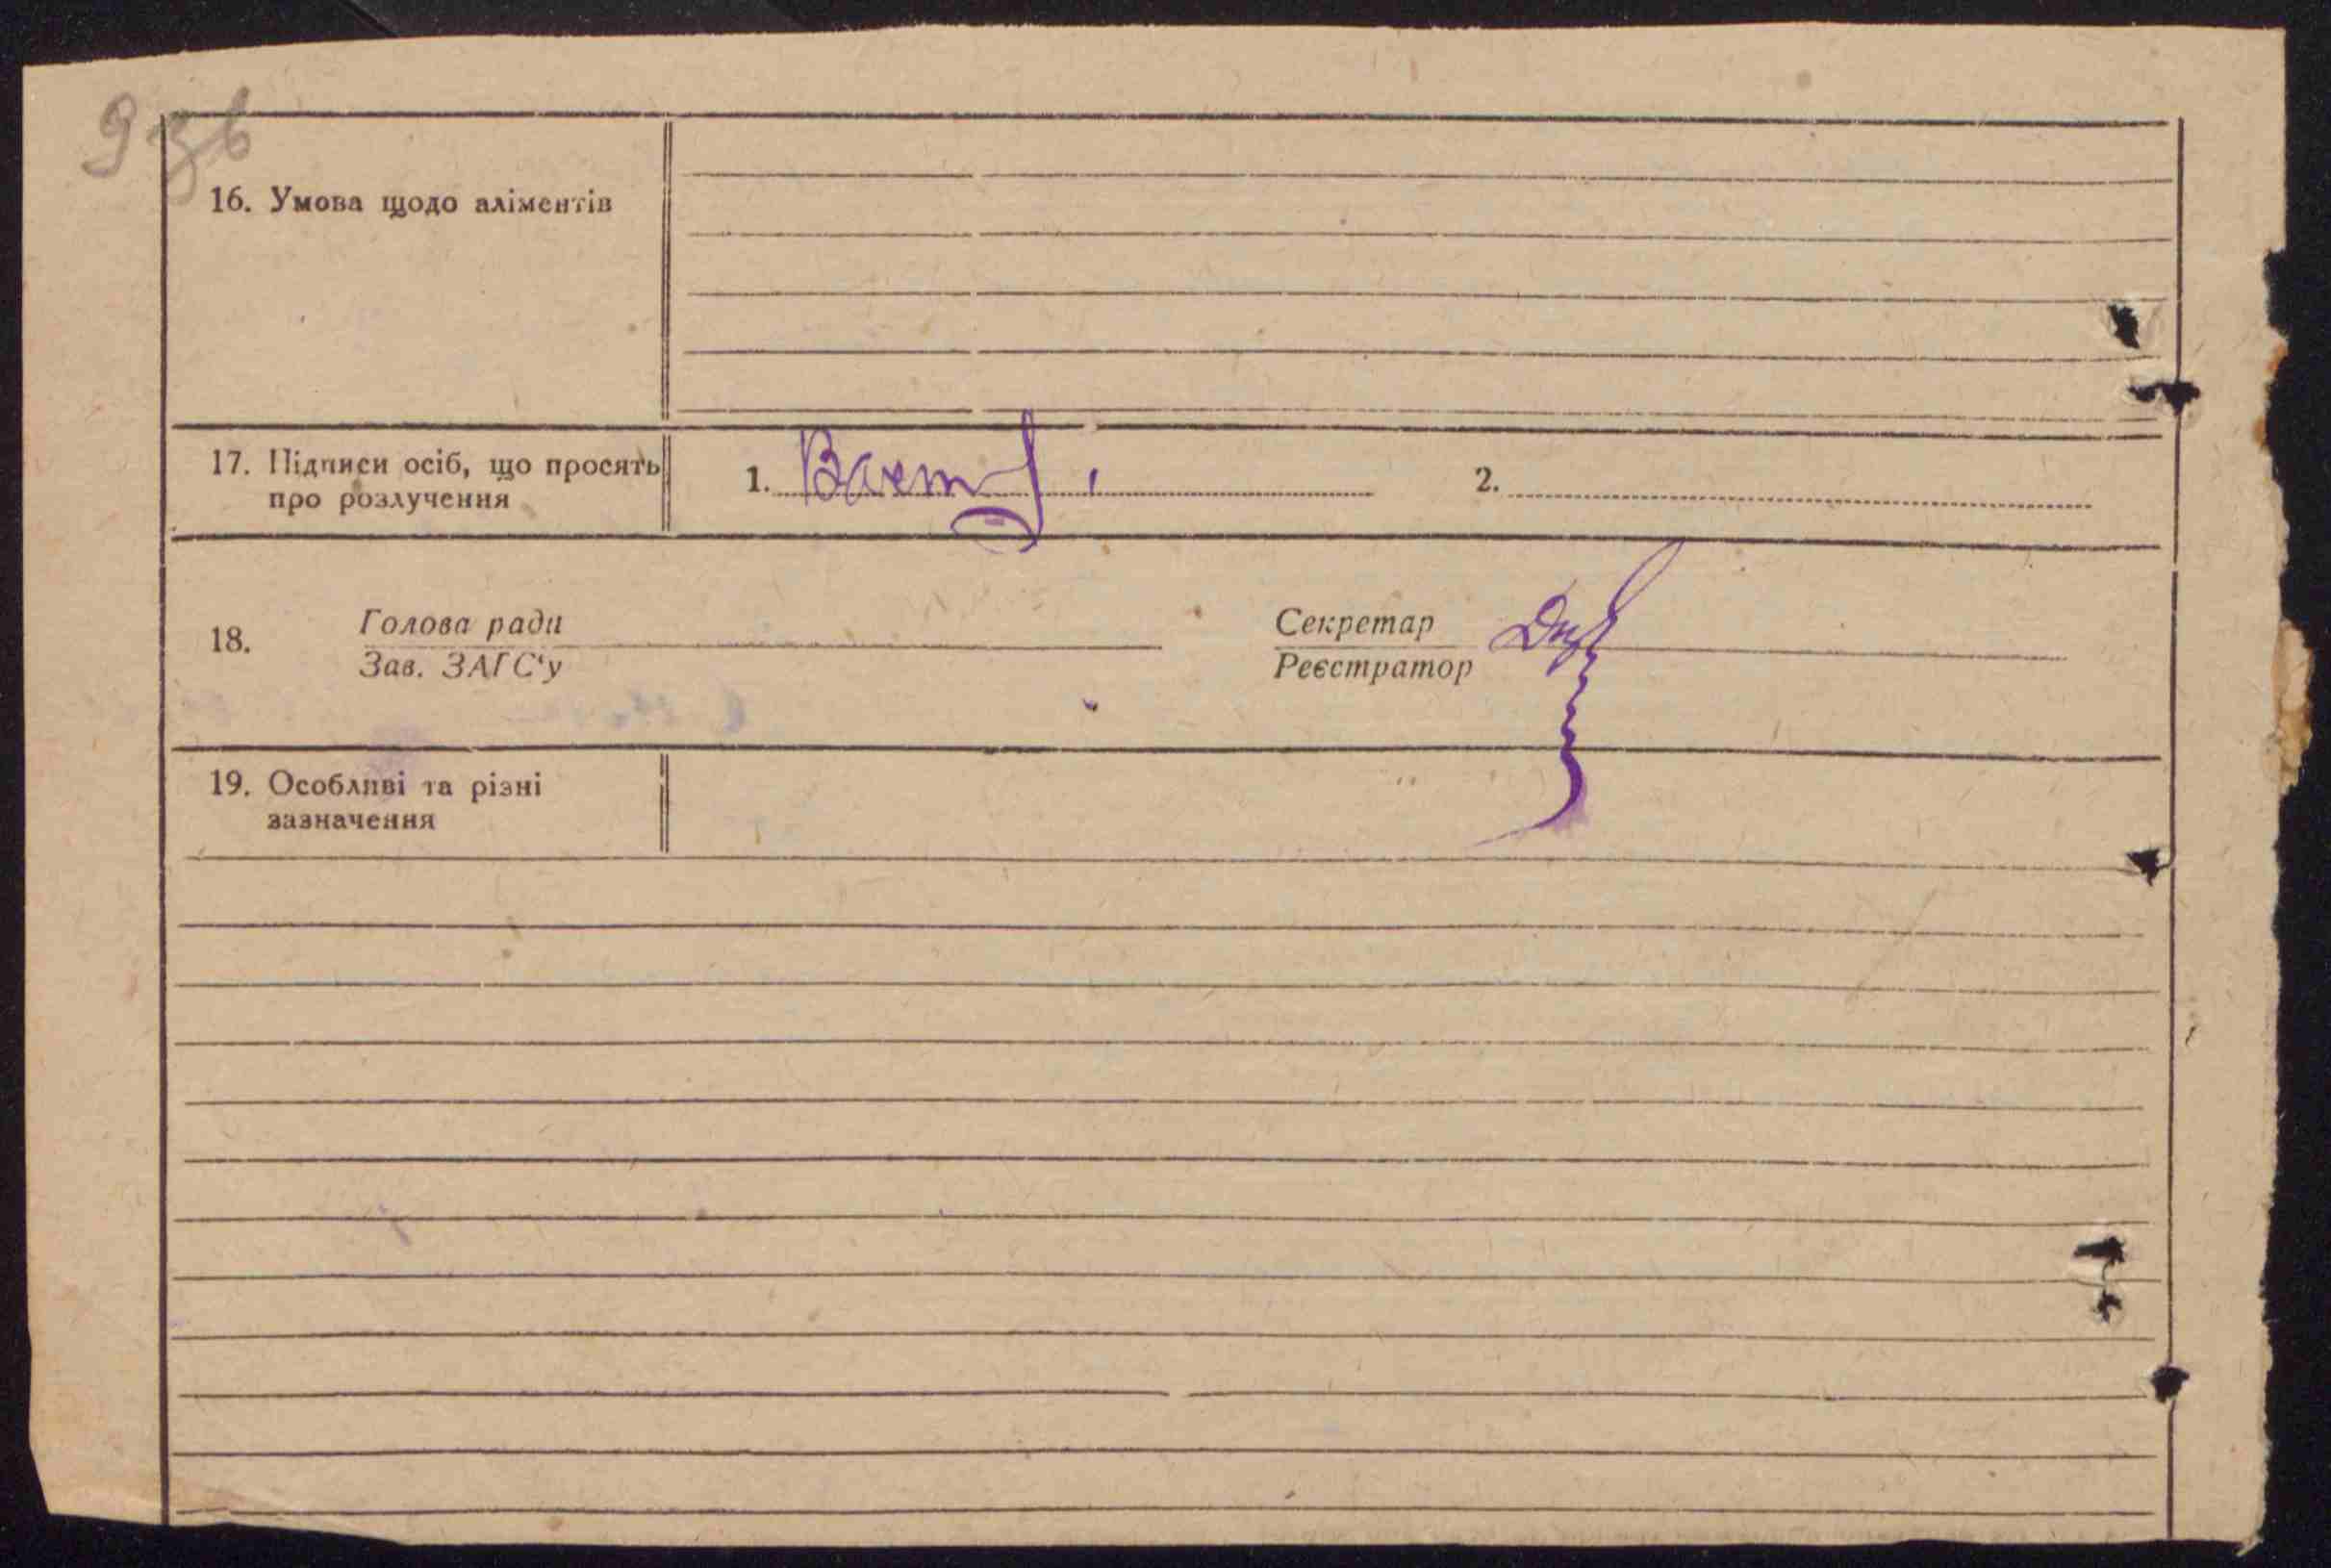 9 зв
16. Умова щодо аліментів
17. Підписи осіб, що просять
про розлучення
1.
2.
18.
Голова ради
Зав. ЗАГС'у
Секретар
Реєстратор
19. Особливі та різні
зазначення